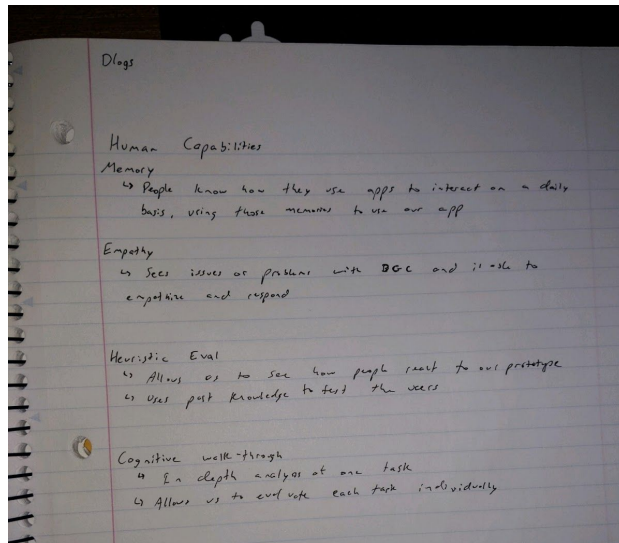 Dlogs
Human Capabilities
Memory
↳ People know how they use apps to interact on a daily
basis, using those memories to use our app
Empathy
↳ Sees issues or problems with BGC and is able to
empathize and respond
Heuristic Eval
↳ Allows us to see how people react to our prototype
↳ Uses past knowledge to test the users
Cognitive walk-through
↳ In depth analysis of one task
↳ Allows us to evaluate each task individually